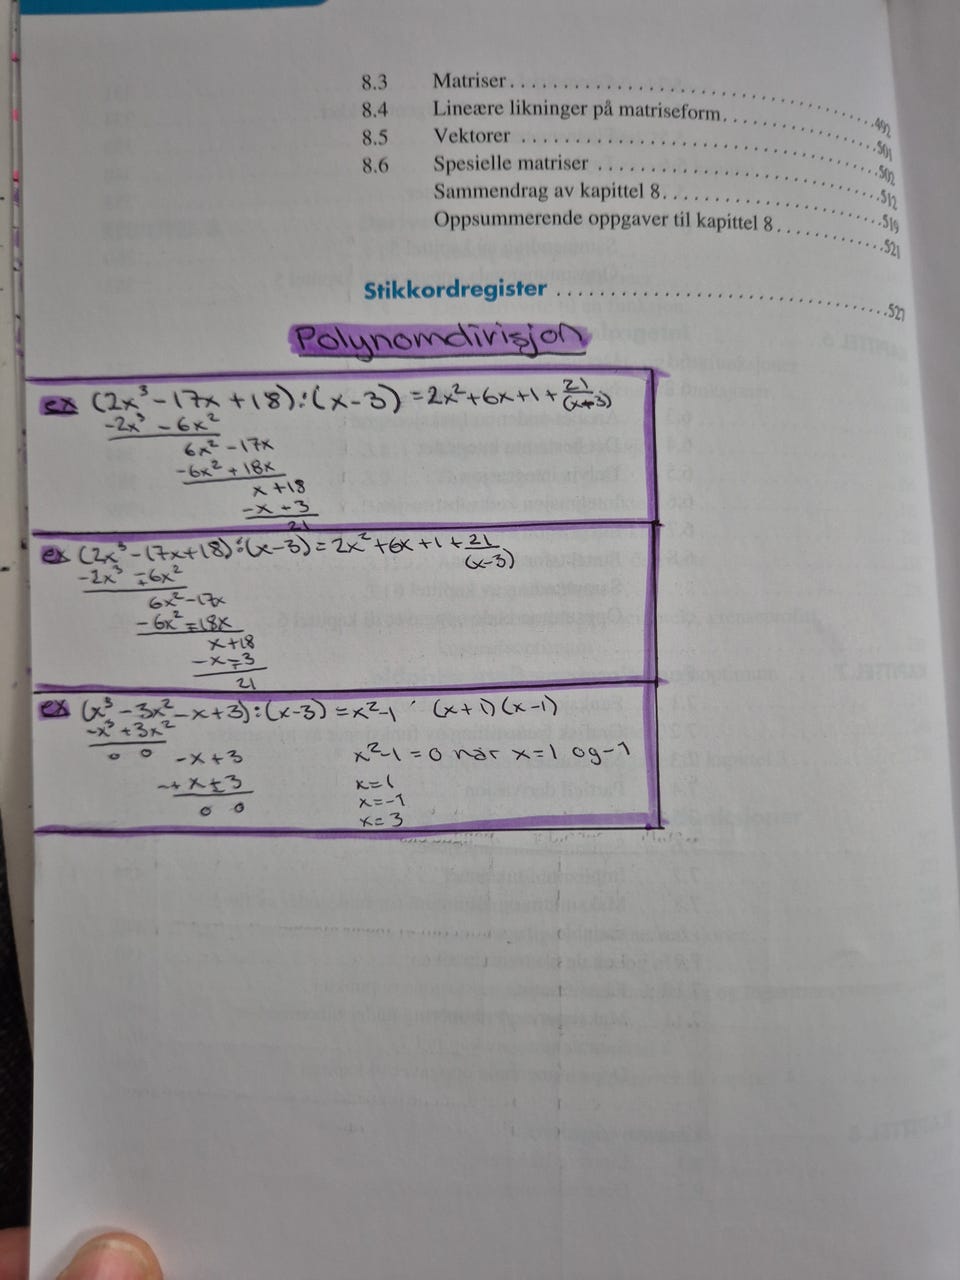 8.3 Matriser . . . . . . . . . . . . . . . . . . . . . . . . . . . . . . 492
8.4 Lineære likninger på matriseform. . . . . . . . . . . . . . 501
8.5 Vektorer . . . . . . . . . . . . . . . . . . . . . . . . . . . . . . 502
8.6 Spesielle matriser . . . . . . . . . . . . . . . . . . . . . . . 512
Sammendrag av kapittel 8. . . . . . . . . . . . . . . . . . . 519
Oppsummerende oppgaver til kapittel 8 . . . . . . . . . . 521
Stikkordregister . . . . . . . . . . . . . . . . . . . . . . . . . 527
Polynomdivisjon
ex (2x³ - 17x + 18) : (x - 3) = 2x² + 6x + 1 + 21/(x-3)
-2x³ - 6x²
6x² - 17x
-6x² + 18x
x + 18
-x + 3
21
ex (2x³ - 17x + 18) : (x - 3) = 2x² + 6x + 1 + 21/(x-3)
-2x³ -+ 6x²
6x² - 17x
-6x² -+ 18x
x + 18
-x -+ 3
21
ex (x³ - 3x² - x + 3) : (x - 3) = x² - 1 (x+1)(x-1)
-x³ + 3x²
0 0 -x + 3
-+ x ± 3
0 0
x² - 1 = 0 når x = 1 og -1
x = 1
x = -1
x = 3